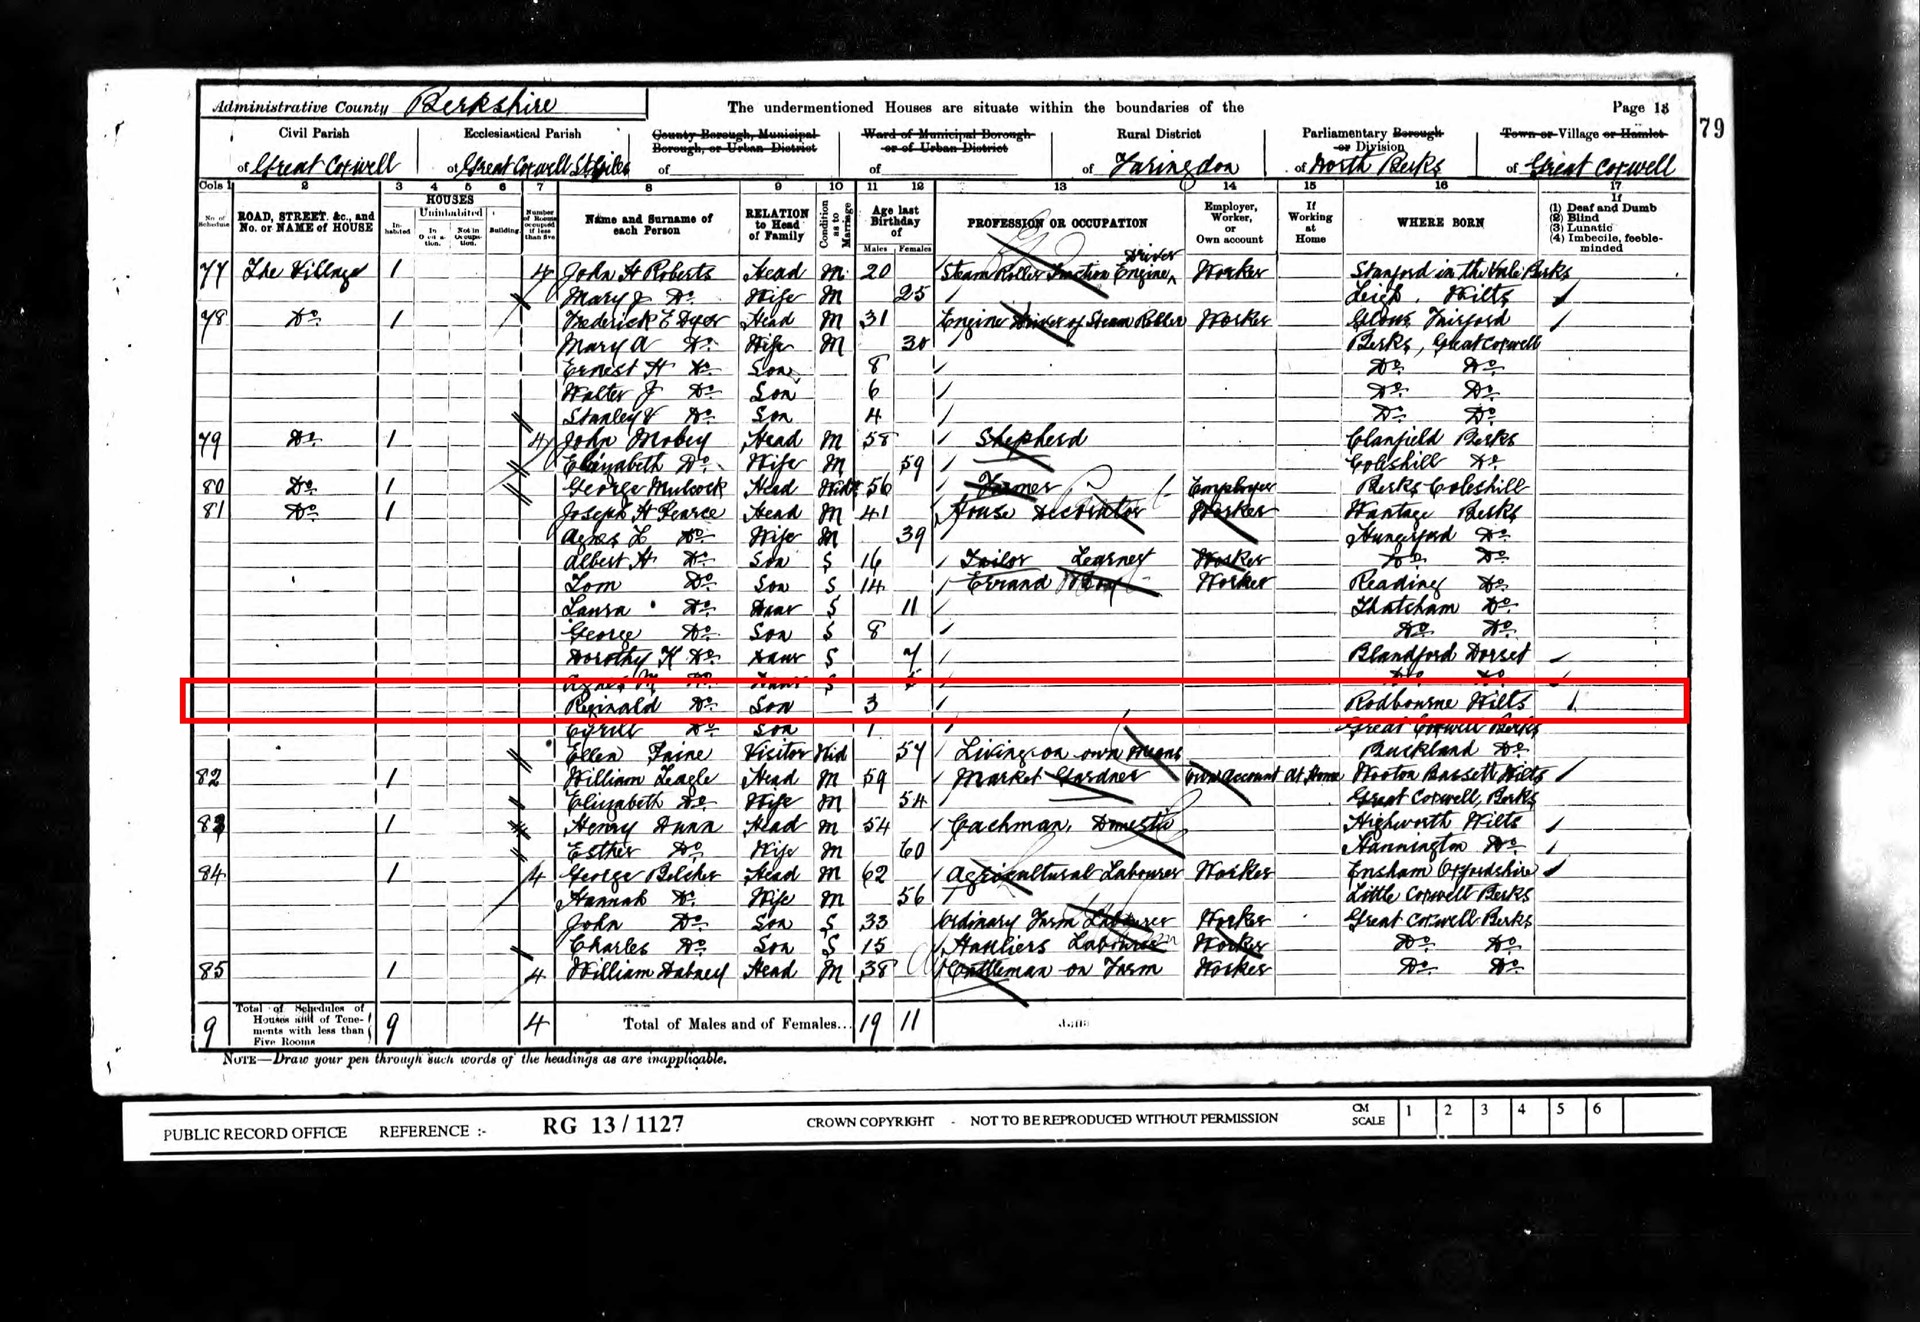 Administrative County Berkshire
The undermentioned Houses are situate within the boundaries of the
Page 18
79
Civil Parish
of Great Coxwell
Ecclesiastical Parish
of Great Coxwell St Giles
County Borough, Municipal Borough, or Urban District
of
Ward of Municipal Borough or of Urban District
of
Rural District
of Faringdon
Parliamentary Borough or Division
of North Berks
Town or Village or Hamlet
of Great Coxwell
Cols 1 2 3 4 5 6 7 8 9 10 11 12 13 14 15 16 17
No. of Schedule
ROAD, STREET, &c., and No. or NAME of HOUSE
HOUSES
Inhabited
Uninhabited
In Occupation.
Not in Occupation.
Building.
Number of Rooms occupied if less than five
Name and Surname of each Person
RELATION to Head of Family
Condition as to Marriage
Age last Birthday of
Males
Females
PROFESSION OR OCCUPATION
Employer, Worker, or Own account
If Working at Home
WHERE BORN
If
(1) Deaf and Dumb
(2) Blind
(3) Lunatic
(4) Imbecile, feeble-minded
77 The Village 1 4 John H Roberts Head M 20 Steam Roller Traction Engine Driver Worker Stanford in the Vale Berks
Mary J Do Wife M 25 Leigh, Wilts
78 Do 1 Frederick E Dyer Head M 31 Engine Driver of Steam Roller Worker Glous Fairford
Mary A Do Wife M 30 Berks, Great Coxwell
Ernest H Do Son 8 Do Do
Walter J Do Son 6 Do Do
Stanley V Do Son 4 Do Do
79 Do 1 4 John Mobey Head M 58 Shepherd Clanfield Berks
Elizabeth Do Wife M 59 Coleshill Do
80 Do 1 George Mulcock Head Widr 56 Farmer Employer Berks Coleshill
81 Do 1 Joseph H Pearce Head M 41 House Decorator Worker Wantage Berks
Agnes L Do Wife M 39 Hungerford Do
Albert H Do Son S 16 Tailor Learner Worker Do Do
Tom Do Son S 14 Errand Boy Worker Reading Do
Laura Do Daur S 11 Thatcham Do
George Do Son S 8 Do Do
Dorothy K Do Daur S 7 Blandford Dorset
Agnes M Do Daur S 5 Do Do
Reginald Do Son 3 Rodbourne Wilts
Cyrill Do Son 1 Great Coxwell Berks
Ellen Visitor Wid 57 Living on own means Buckland Do
82 1 William Teagle Head M 59 Market Gardner Own account At Home Wooton Bassett Wilts
Elizabeth Do Wife M 54 Great Coxwell, Berks
83 1 Henry Dunn Head M 54 Cachman, Domestic Highworth Wilts
Esther Do Wife M 60 Hannington Do
84 1 4 George Belcher Head M 62 Agricultural Labourer Worker Ensham Oxfordshire
Hannah Do Wife M 56 Little Coxwell Berks
John Do Son S 33 Ordinary Farm Labourer Worker Great Coxwell Berks
Charles Do Son S 15 Hauliers Labourer Worker Do Do
85 1 4 William Head M 38 Cattleman on Farm Worker Do Do
9 Total of Schedules of Houses and of Tenements with less than Five Rooms 9 4 Total of Males and of Females... 19 11
NOTE—Draw your pen through such words of the headings as are inapplicable.
PUBLIC RECORD OFFICE REFERENCE :- RG 13/1127 CROWN COPYRIGHT - NOT TO BE REPRODUCED WITHOUT PERMISSION CM SCALE 1 2 3 4 5 6